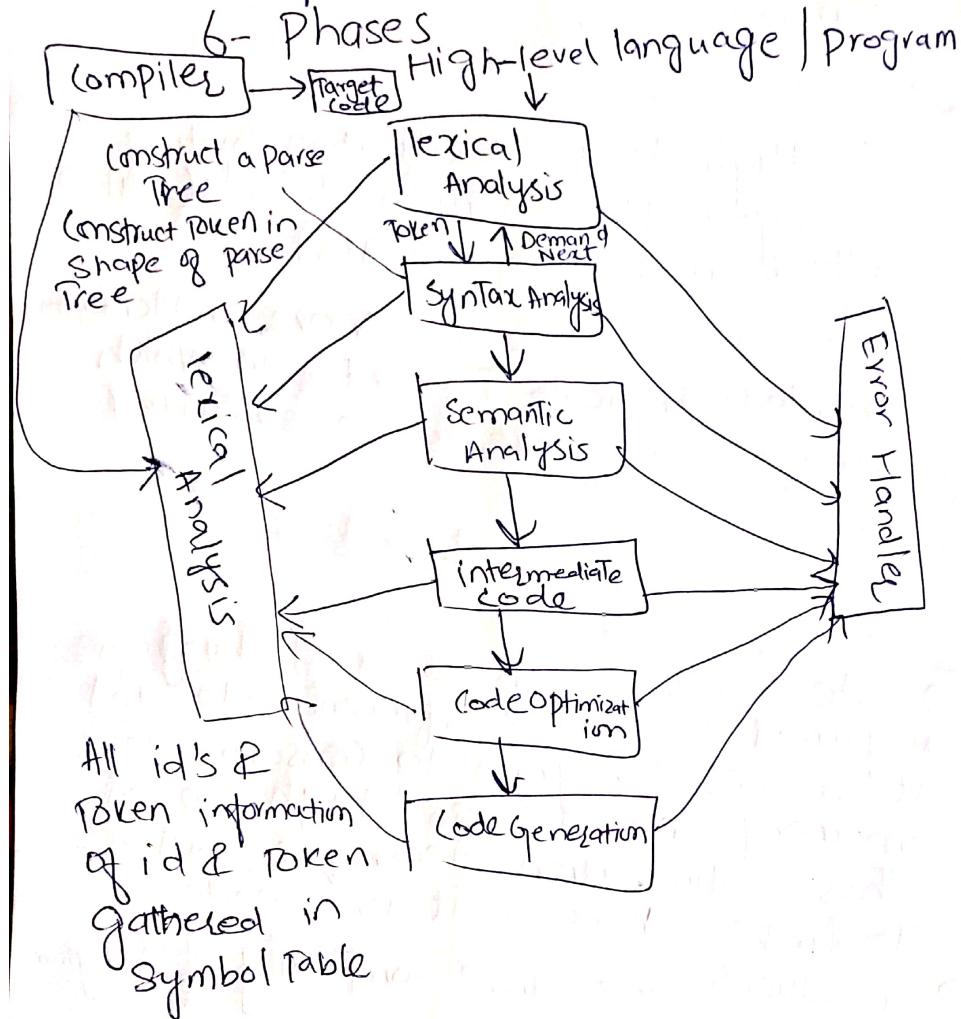 6- Phases
Compiler
Target
Code
High-level language / program
lexical
Analysis
Construct a parse
Tree
Construct Token in
Shape of parse
Tree
Token
Demand
Next
Syntax Analysis
Semantic
Analysis
intermediate
code
Code Optimizat
ion
Code Generation
lexical Analysis
Error Handler
All id's &
Token information
of id & Token
gathered in
Symbol Table